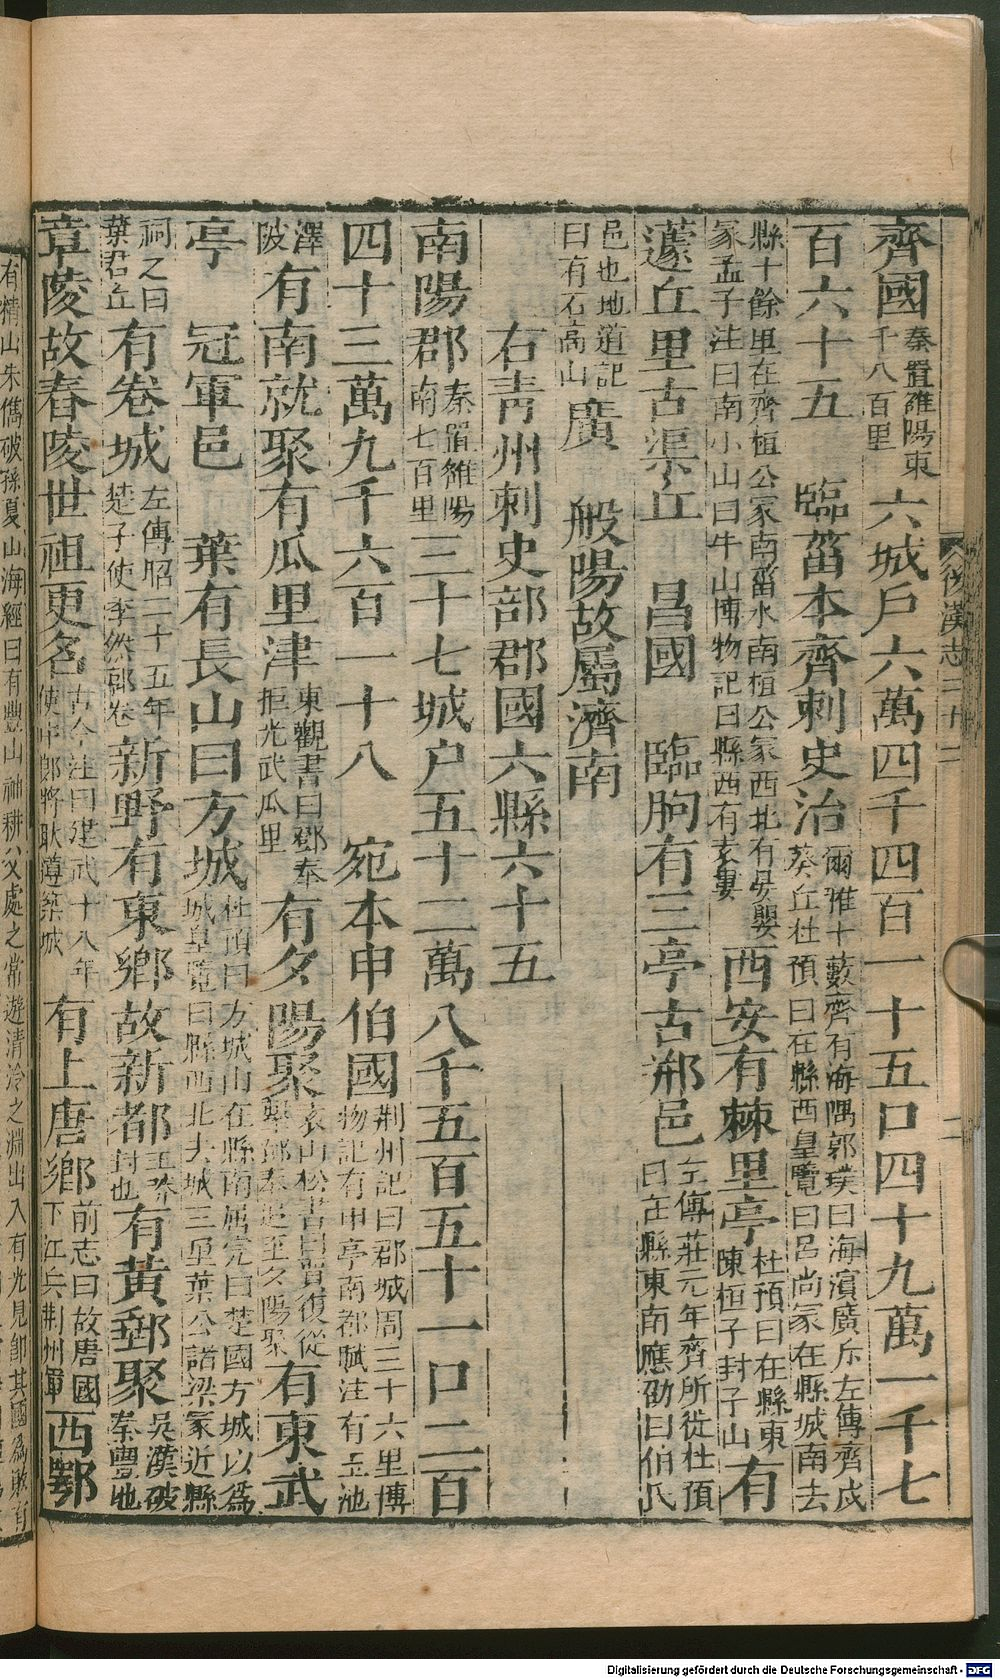 齊國秦置雒陽東千八百里六城戶六萬四千四百一十五口四十九萬一千七
百六十五　臨菑本齊刺史治爾雅十藪齊有海隅郭璞曰海濱廣斥左傳齊戍葵丘杜預曰在縣西皇覽曰呂尚冢在縣城南去
縣十餘里在齊桓公冢南菑水南桓公冢西北有晏嬰冢孟子注曰南小山曰牛山博物記曰縣西有袁婁西安有棘里亭杜預曰在縣東陳桓子封子山有
蘧丘里古渠丘　昌國　臨朐有三亭古郱邑左傳莊元年齊所徙杜預曰在縣東南應劭曰伯氏
邑也地道記曰有石高山廣　般陽故屬濟南
右青州刺史部郡國六縣六十五
南陽郡秦置雒陽南七百里三十七城户五十二萬八千五百五十一口二百
四十三萬九千六百一十八　宛本申伯國荆州記曰郡城周三十六里博物記有申亭南都賦注有玉池
澤陂有南就聚有瓜里津東觀書曰鄧奉拒光武瓜里有夕陽聚袁山松書曰賈復從擊鄧奉追至夕陽聚有東武
亭　冠軍邑　葉有長山曰方城杜預曰方城山在縣南屈完曰楚國方城以爲城皇覽曰縣西北去城三里葉公諸梁冢近縣
祠之曰葉君丘有卷城左傳昭二十五年楚子使季然郭卷新野有東鄉故新都王莽封也有黄郵聚吳漢破秦豐地
章陵故舂陵世祖更名古今注曰建武十八年使中郎將耿遵築城有上唐鄉前志曰故唐國下江兵荆州軍西鄂
有精山朱儁破孫夏山海經曰有豐山神耕父處之常遊清泠之淵出入有光見卽其國爲敗有
後漢志二十二
二
Digitalisierung gefördert durch die Deutsche Forschungsgemeinschaft - DFG